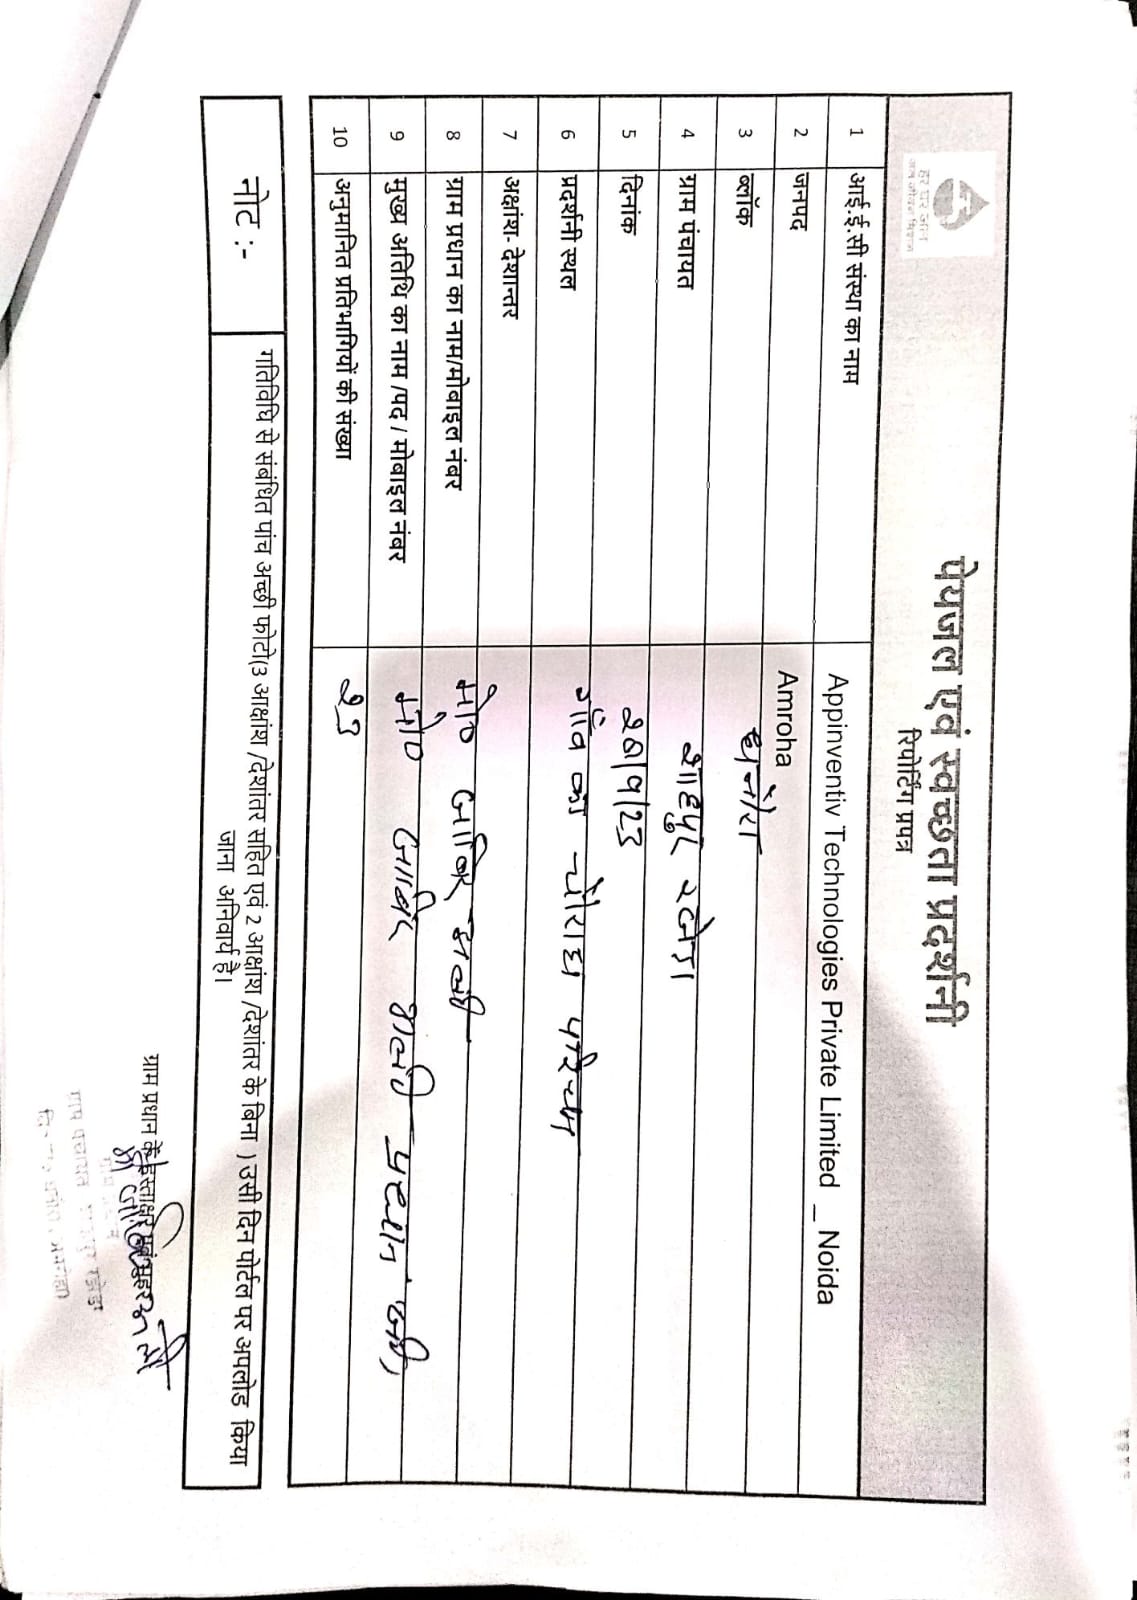 हर घर जल
जल जीवन मिशन
पेयजल एवं स्वच्छता प्रदर्शनी
रिपोर्टिंग प्रपत्र
1 आई.ई.सी संस्था का नाम Appinventiv Technologies Private Limited _ Noida
2 जनपद Amroha
3 ब्लॉक धनौरा
4 ग्राम पंचायत शाहपुर
5 दिनांक
6 प्रदर्शनी स्थल गाँव का चौराहा
7 अक्षांश- देशान्तर
8 ग्राम प्रधान का नाम/मोबाइल नंबर मो०
9 मुख्य अतिथि का नाम /पद / मोबाइल नंबर मो० प्रधान जी
10 अनुमानित प्रतिभागियों की संख्या २३
नोट :- गतिविधि से संबंधित पांच अच्छी फोटो(3 आक्षांश /देशांतर सहित एवं 2 आक्षांश /देशांतर के बिना ) उसी दिन पोर्टल पर अपलोड किया
जाना अनिवार्य है।
ग्राम प्रधान के हस्ताक्षर एवं मुहर